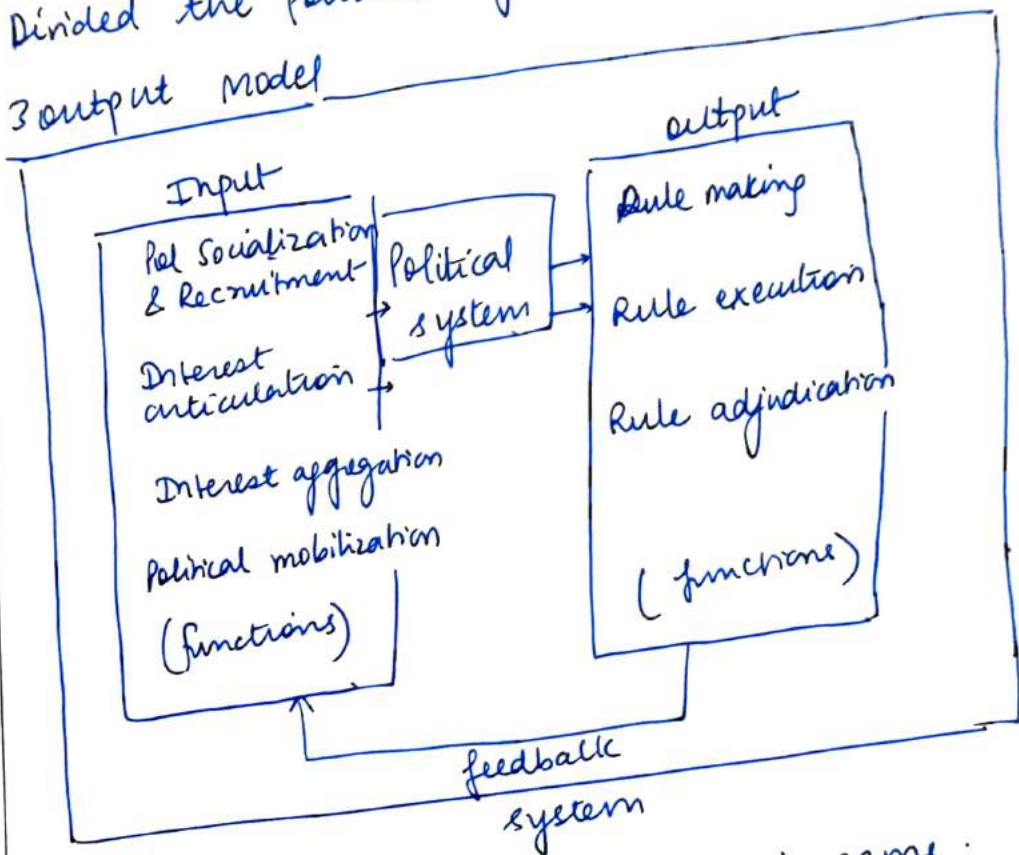 Divided the
3 output model
Input
Pol Socialization
& Recruitment
Interest
articulation
Interest aggregation
Political mobilization
(functions)
Political
system
output
Rule making
Rule execution
Rule adjudication
(functions)
feedback
system